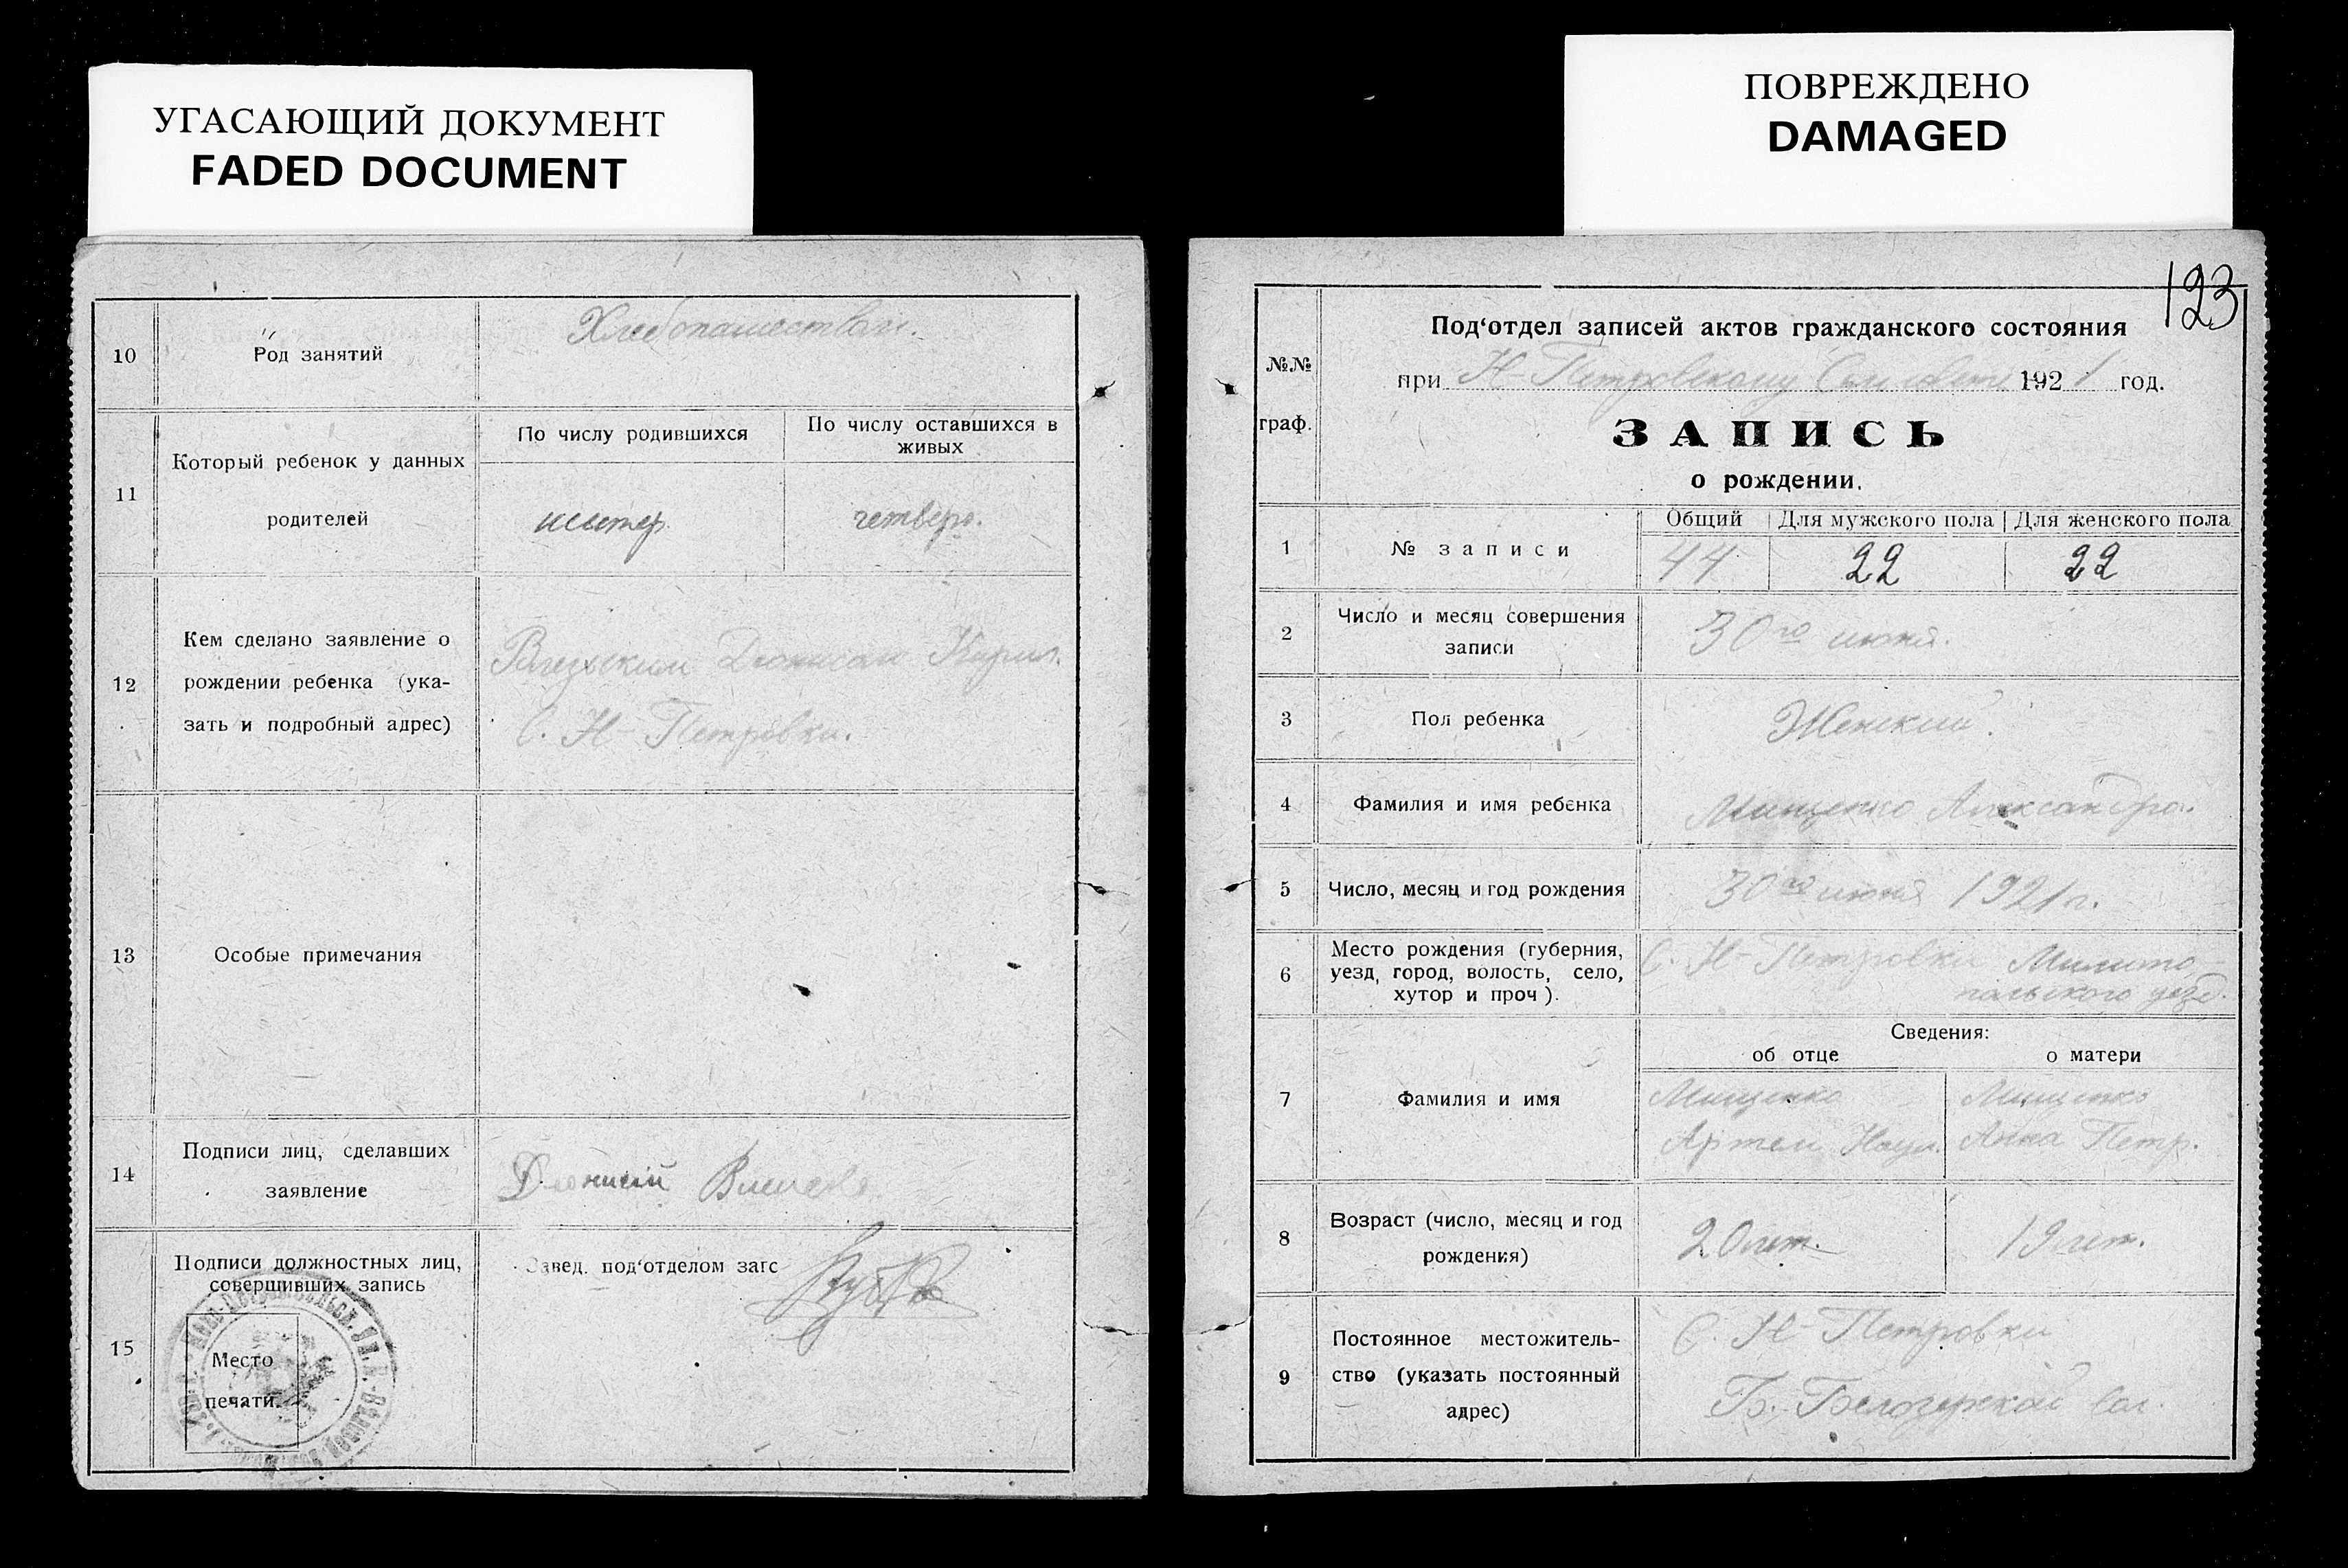 УГАСАЮЩИЙ ДОКУМЕНТ
FADED DOCUMENT
10
Род занятий
Хлебопашеством.
11
Который ребенок у данных
родителей
По числу родившихся
По числу оставшихся в
живых
четверо.
12
Кем сделано заявление о
рождении ребенка (ука-
зать и подробный адрес)
Дионисом Кирил.
С. Н-Петровки.
13
Особые примечания
14
Подписи лиц, сделавших
заявление
Дионисий
15
Подписи должностных лиц,
совершивших запись
Место
печати.
Завед. под‘отделом загс
ПОВРЕЖДЕНО
DAMAGED
123
№№
граф.
Под‘отдел записей актов гражданского состояния
при Н-Петровскому 1921 год.
ЗАПИСЬ
о рождении.
1
№ записи
Общий Для мужского пола Для женского пола
44 22 22
2
Число и месяц совершения
записи
30го июня.
3
Пол ребенка
Женский.
4
Фамилия и имя ребенка
Мищенко Александра.
5
Число, месяц и год рождения
30го июня 1921 г.
6
Место рождения (губерния,
уезд, город, волость, село,
хутор и проч).
С. Н-Петровки Мелито-
польского уезд.
7
Фамилия и имя
Сведения:
об отце о матери
Мищенко
Артем Наум.
Мищенко
Анна Петр.
8
Возраст (число, месяц и год
рождения)
20 лет.
19 лет.
9
Постоянное местожитель-
ство (указать постоянный
адрес)
С. Н-Петровки
Б.-Белозерской вол.